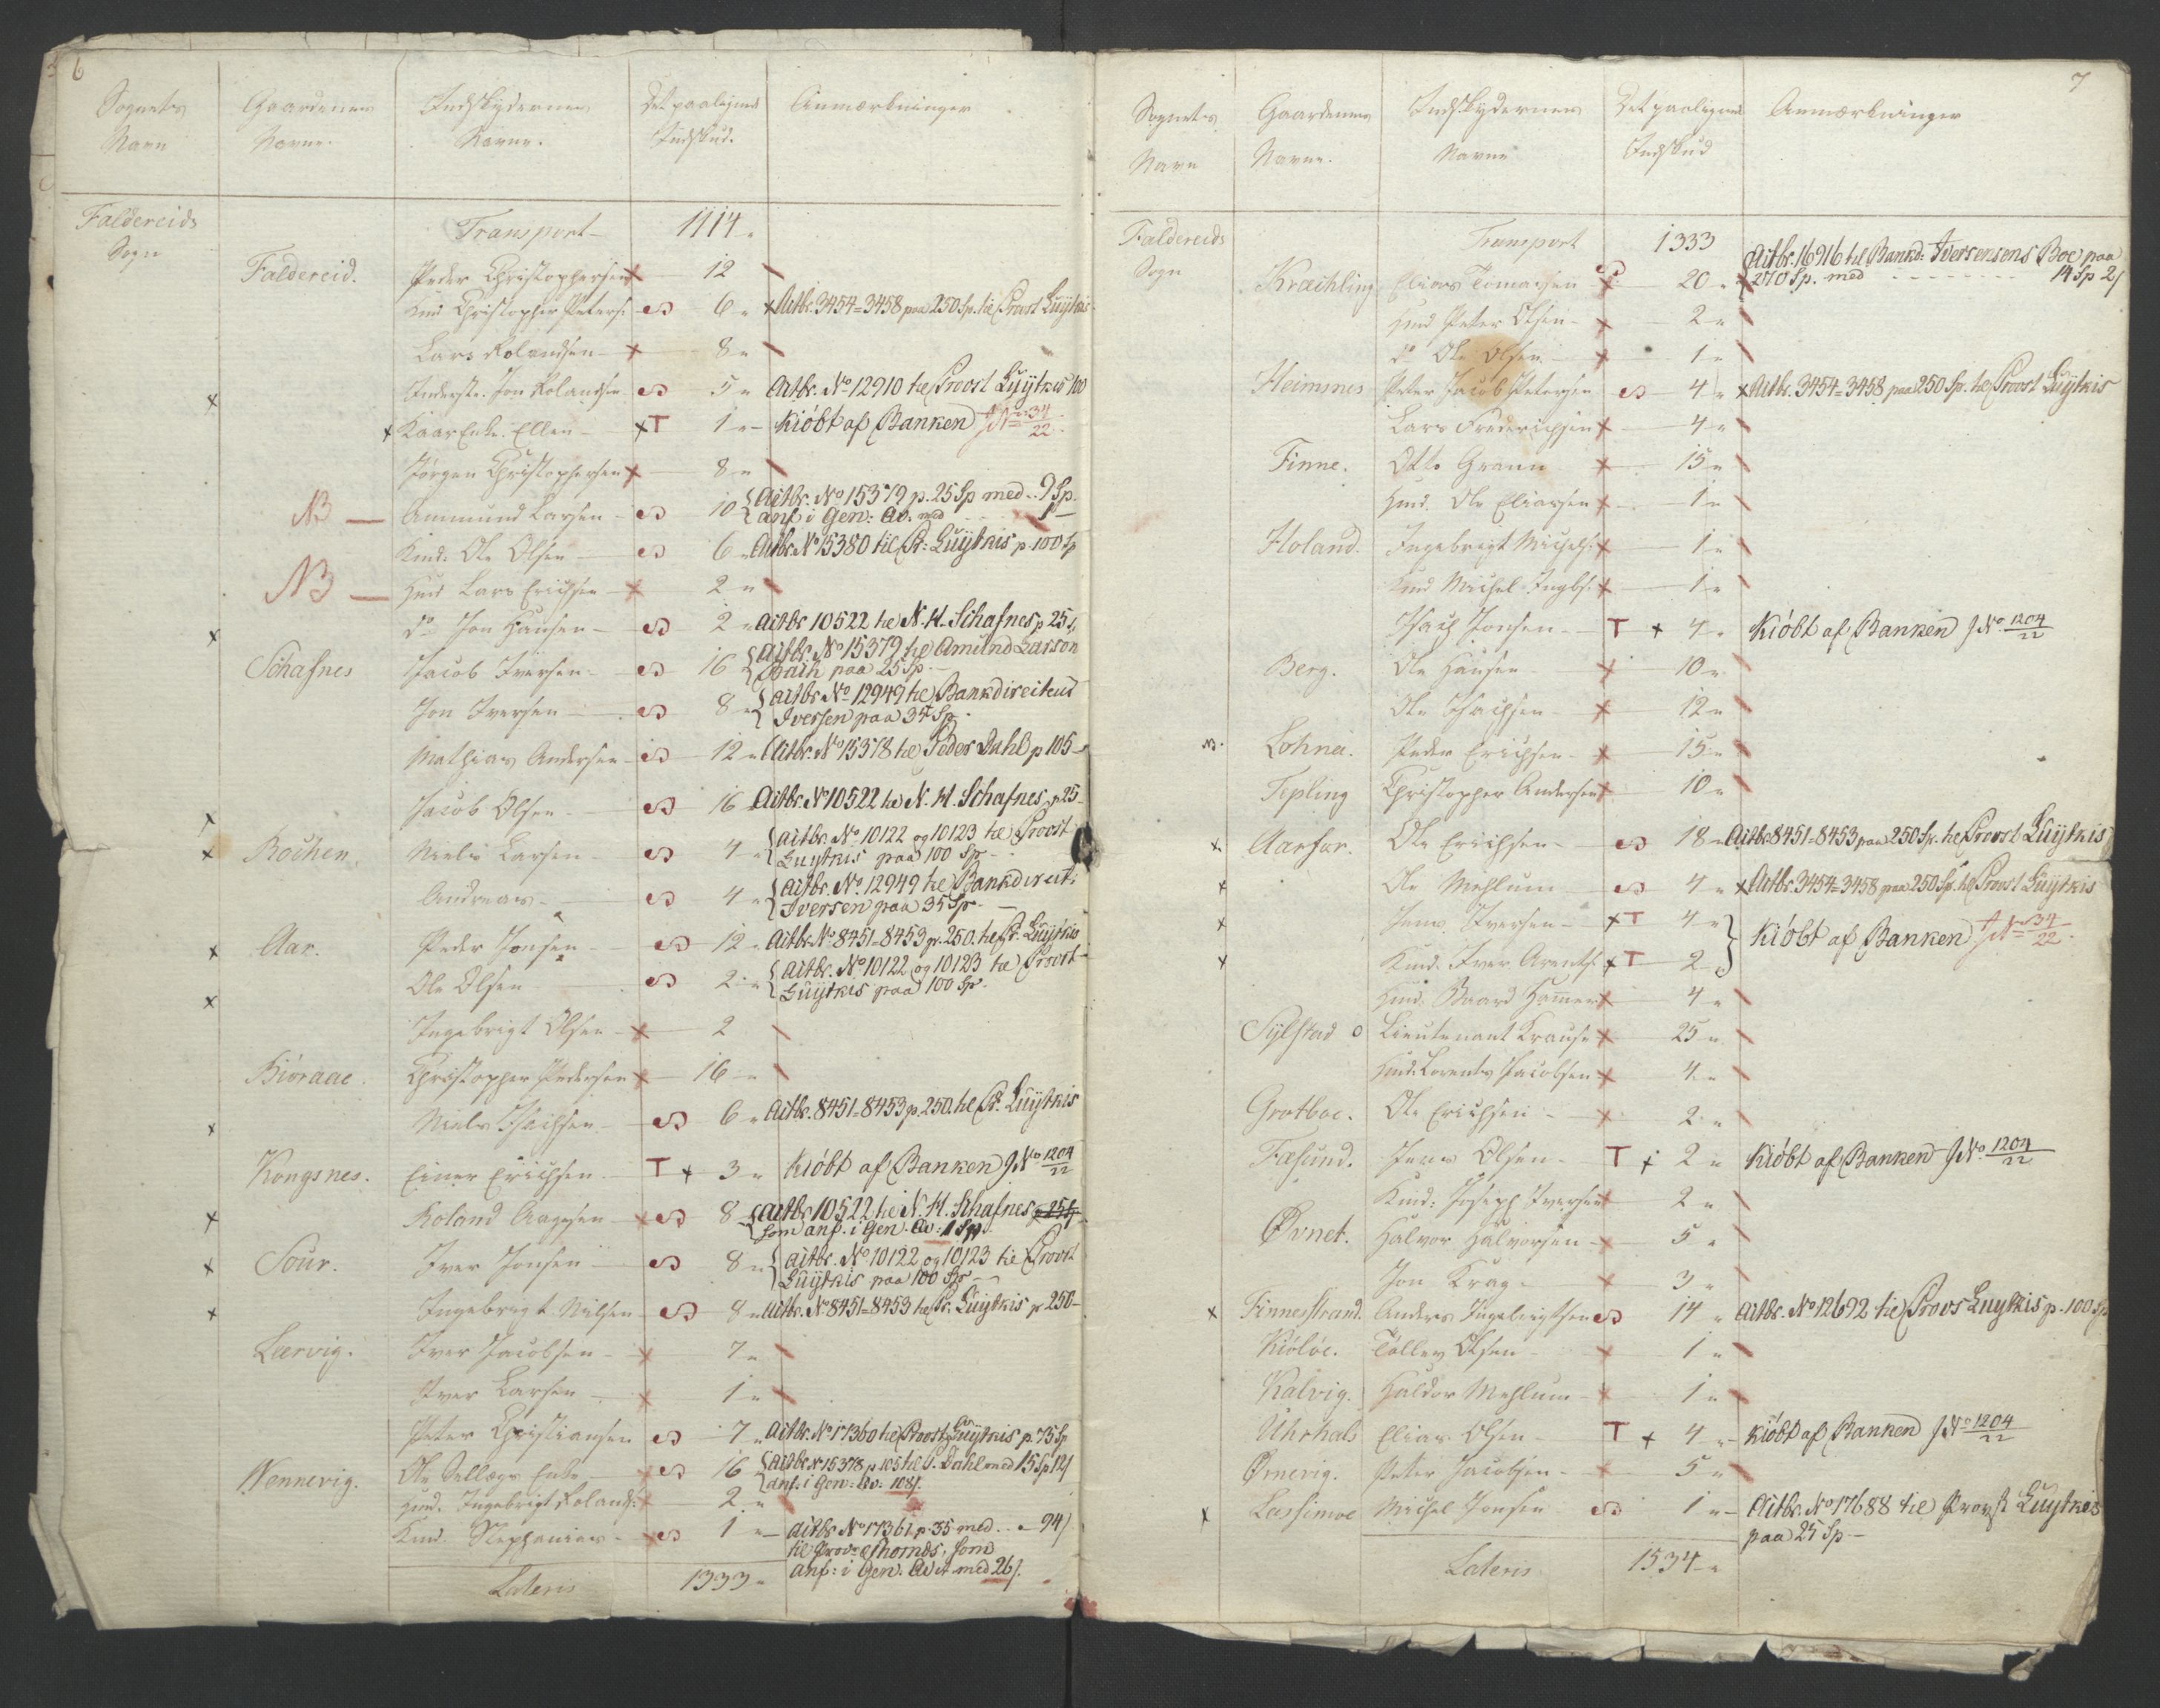 6
Sognets Navn | Gaardenes Navne. | Indskydernes Navne. | Det paalignede Indskud. | Anmærkninger
Faldereids Sogn | Transport | 1114 "
Faldereid. | Peder Christophersen | x | 12
Kind Christopher Peters: | S | 6 " | x Actbr. 3454=3458 paa 250 Sp. til Provst Luytkis
Lars Rolandsen | x | 8 "
x | Inderste. Jon Rolandsen | S | 5 " | Actbr. No 12910 til Provst Luytkis 100
x Kaar Enke. Ellen | xT | 1 " | Kiöbt af Banken J No 34/22
Jørgen Christophersen | x | 8 "
NB | Ammund Larsen | S | 10 | Actbr. No 15379 p. 25 Sp med .. 9 Sp.
anf i Gen: Qv. med 1 —
Kind: Ole Olsen | S | 6 " | Actbr No 15380 til Pr: Luytkis p. 100 Sp
NB | Huus Lars Erichsen | x | 2 "
x | do Jon Hansen | S | 2 " | Actbr 10522 til N. H. Schafnes p 25
Schafnes | Jacob Iversen | S | 16 | Actbr. No 15379 til Amund Larson
paa 25 Sp.
Jon Iversen | S | 8 " | Actbr No 12949 til Bankdirecteur
Iversen paa 35 Sp.
Mathias Andersen | S | 12 " | Actbr. No 15378 til Peder Dahl p 105
x | Jacob Olsen | S | 16 | Actbr. No 10522 til N. H. Schafnes p 25
x | Rochen. | Niels Larsen | S | 4 " | Actbr. No 10122 og 10123 til Provst
Luytkis paa 100 Sp
Andreas | S | 4 " | Actbr. No 12949 til Bankdirect:
Iversen paa 35 Sp
x | Aar. | Peder Jonsen | S | 12 " | Actbr. No 8451=8453 p. 250. til Pr. Luytkis
x | Ole Olsen | S | 2 " | Actbr. No 10122 og 10123 til Provst
Luytkis paa 100 Sp.
Ingebrigt Olsen | x | 2
Kiöraae. | Christopher Pedersen | x | 16 "
x | Niels Isachsen | S | 6 " | Actbr. 8451=8453 p. 250. til Pr. Luytkis
Kongsnes. | Einer Erichsen | T x | 3 " | Kiöbt af Banken J No 1204/22
x | Roland Aagesen | x S | 8 | Actbr 10522 til N. H. Schafnes p 25 Sp
som anf. i Gen. Qv: 1 Sp.
x | Sour. | Iver Jonsen | S | 8 " | Actbr. No 10122 og 10123 til Provst
Luytkis paa 100 Sp
x | Ingebrigt Nilsen | S | 8 " | Actbr. No 8451=8453 til Pr. Luytkis p 250
Leervig. | Iver Jacobsen | x | 7 "
Iver Larsen | x | 1 "
Peter Christiansen | S | 7 " | Actbr. No 17360 til Provst Luytkis p. 75 Sp
Nennevig. | Ole Enke | x S | 16 | Actbr No 15378 p 105 til P. Dahl med 15 Sp 12
anf. i Gen: Qv: 108
Huus. Ingebrigt Rolands: | x | 2 "
Kind Stephanias | x S | 1 " | Actbr No 17361 p. 35 med .. 94
til Thomds: som
anf: i Gen. Qvit med 26
Lateris | 1333 "
7
Sognets Navn | Gaardenes Navne. | Indskydernes Navne | Det paalignede Indskud | Anmærkninger
Faldereids Sogn | Transport | 1333
Actbr. 16916 til Bankd: Iversensens Boe paa
Kræchling | Elias Tomassen | S x | 20 " | 270 Sp. med 14 Sp 2
Huus Peter Olsen | x | 2 "
do Ole Olsen | x | 1 "
Heimmes | Peter Jacob Petersen | S | 4 " | x Actbr. 3454=3458 paa 250 Sp. til Provst Luytkis
Lars Friderichsen | x | 4 "
Finne. | Otto Grann | x | 15 "
Huus. Ole Eliasen | x | 1 "
Holand. | Ingebrigt Michels: | x | 1 "
Kind Michel Ingebr: | x | 1 "
Isach Jonsen | T x | 4 " | Kiöbt af Banken J No 1204/22
Berg. | Ole Hansen | x | 10 "
Ole Isachsen | x | 12 "
NB. | Lohnei. | Peder Erichsen | x | 15 "
Tepling | Christopher Andersen | x | 10 "
x | Aarfar. | Ole Erichsen | S | 18 " | Actbr. 8451=8453 paa 250 Sp. til Provst Luytkis
x | Ole Mehlum | S | 4 " | x Actbr. 3454=3458 paa 250 Sp. til Provst Luytkis
x | Jens Iversen | x T | 4 " | Kiöbt af Banken J No 34/22
x | Kind. Iver Arents: | x T | 2
Huus. Baard Hamer | x | 4 "
Sylstad | Lieutenant Krause | x | 25 "
Huus. Lorents Jacobsen | x | 4 "
Grotboe. | Ole Erichsen | x | 2 "
Fæsund. | Jens Olsen | T x | 2 " | Kiöbt af Banken J No 1204/22
Kind: Joseph Iversen | x | 2 "
Øvnet. | Halvor Halvorsen | x | 5 "
Jon Krag | x | 3 "
x | Finnesstrand. | Anders Ingebrigtsen | S | 14 " | Actbr. No 12692 til Provs Luytkis p. 100 Sp
Kiölöe. | Tollev Olsen | x | 1 "
Kalvig. | Haldor Mehlum | x | 1 "
Uhrhals | Elias Olsen | T x | 4 " | Kiöbt af Banken J No 1204/22
Ørnevig. | Peter Jacobsen | x | 5 "
x | Lassimoe | Michel Jonsen | S | 1 " | Actbr. No 17688 til Provst Luytkis
paa 25 Sp
Lateris | 1534 "